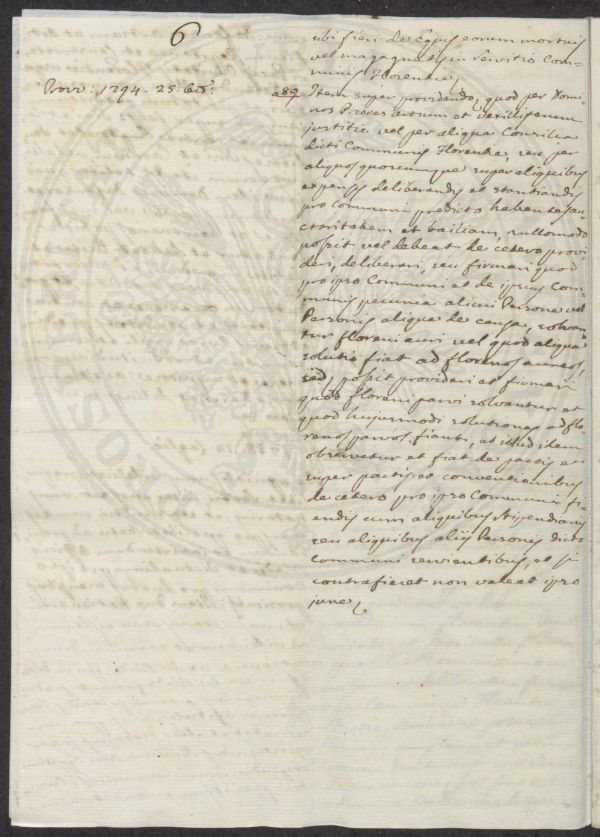 6
sibi fieri de Equis eorum mortuis
vel magagnatis in servitio Com=
munis Florentie,
Provv: 1294. 25. Oct:
a 89 Item super providendo, quod per Domi=
nos Priores artium et Vexilliferum
justitie vel per aliqua Consilia
dicti Communis Florentie, seu per
aliquos quoscumque super aliquibus
expensis deliberandis et stantiandis
pro Communi predicto habentes au
ctoritatem et bailiam, nullomodo
possit vel debeat de cetero provi
deri, deliberari, seu firmari quod
pro ipso Communi et de ipsius Com=
munis pecunia alicui Persone vel
Personis aliqua de causa, solvan
tur floreni auri vel quod aliqua
solutio fiat ad florenos aureos,
sed, possit provideri et firmari
quod floreni parvi solvantur et
quod hujusmodi solutiones ad flo
renos parvos fiant, et illud idem
observetur et fiat de pactis et
super pactis et conventionibus
de cetero pro ipso Communi fi=
endis cum aliquibus stipendiariis
seu aliquibus aliis Personis dicto
communi servientibus, et si
contrafieret non valeat ipso
jure,